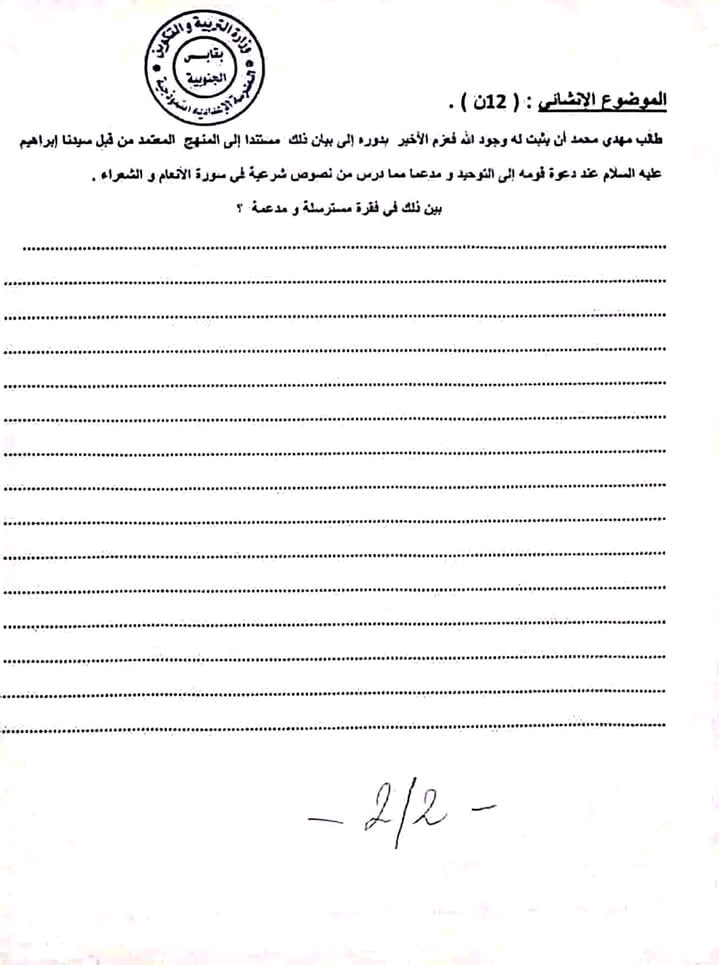 وزارة التربية و التكوين
المدرسة الإعدادية النموذجية
بقابس
الجنوبية
الموضوع الإنشائي : ( 12ن ) .
طلب مهدي محمد أن يثبت له وجود الله فعزم الأخير بدوره إلى بيان ذلك مستندا إلى المنهج المعتمد من قبل سيدنا إبراهيم
عليه السلام عند دعوة قومه إلى التوحيد و مدعما مما درس من نصوص شرعية في سورة الأنعام و الشعراء .
بين ذلك في فقرة مسترسلة و مدعمة ؟
- 2/2 -